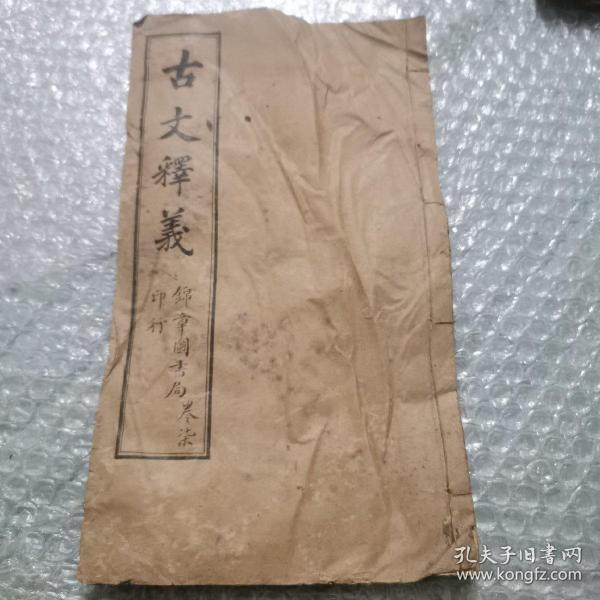 古文釋義
錦章圖書局卷柒
印行
孔夫子旧書网
www.kongfz.com